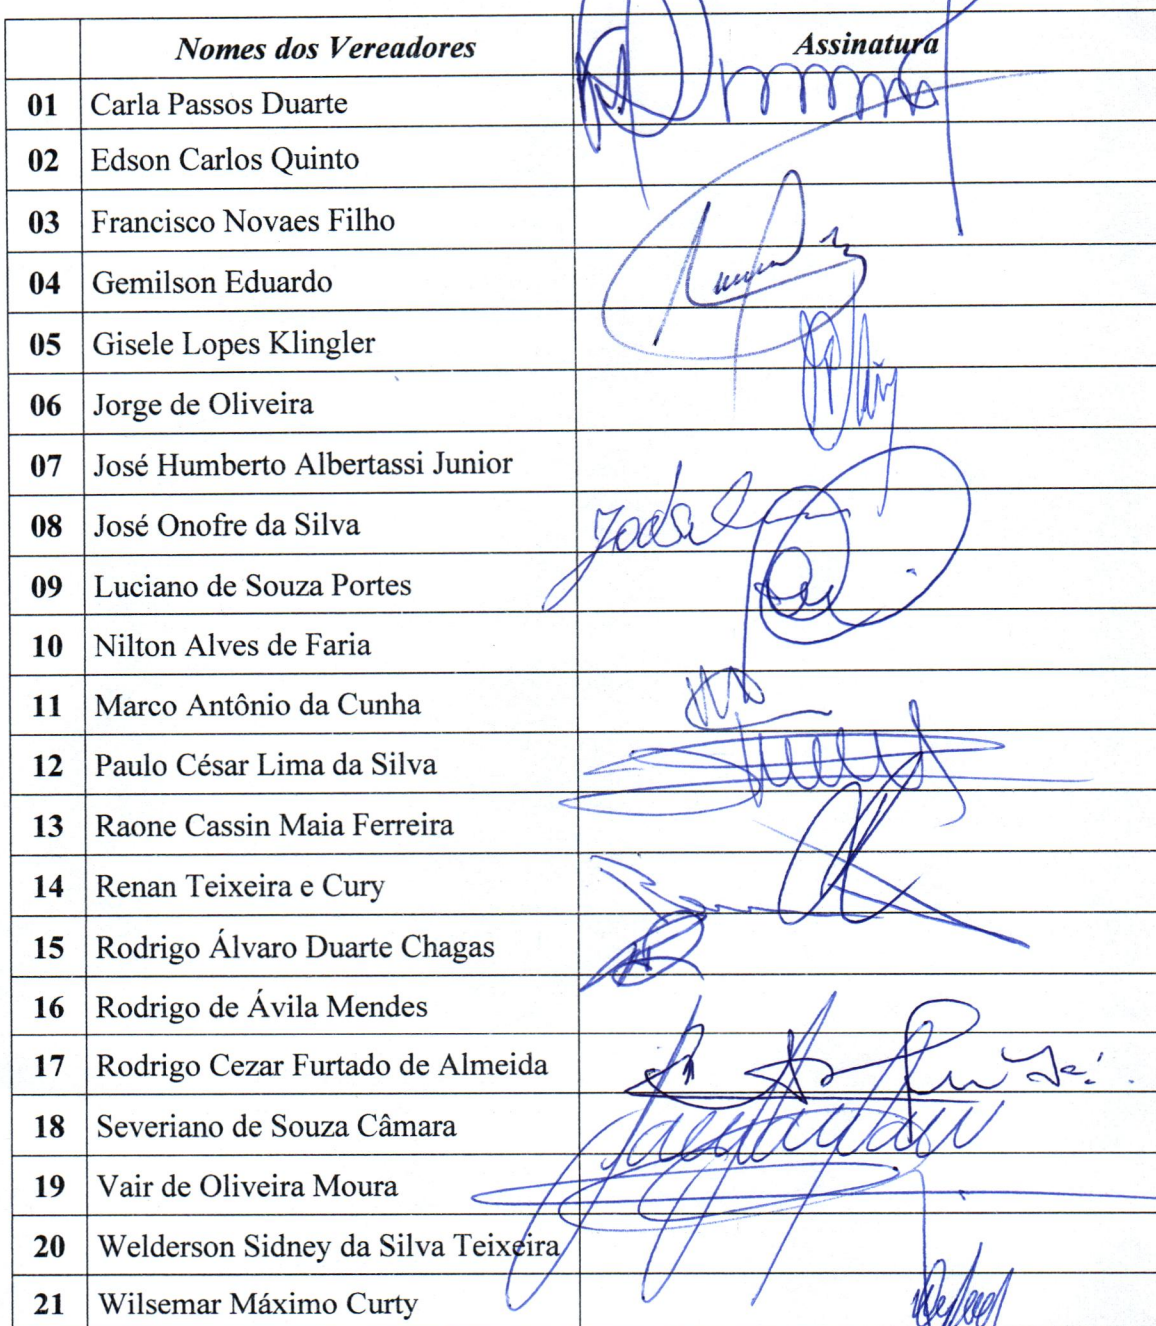 Nomes dos Vereadores Assinatura
01 Carla Passos Duarte
02 Edson Carlos Quinto
03 Francisco Novaes Filho
04 Gemilson Eduardo
05 Gisele Lopes Klingler
06 Jorge de Oliveira
07 José Humberto Albertassi Junior
08 José Onofre da Silva
09 Luciano de Souza Portes
10 Nilton Alves de Faria
11 Marco Antônio da Cunha
12 Paulo César Lima da Silva
13 Raone Cassin Maia Ferreira
14 Renan Teixeira e Cury
15 Rodrigo Álvaro Duarte Chagas
16 Rodrigo de Ávila Mendes
17 Rodrigo Cezar Furtado de Almeida
18 Severiano de Souza Câmara
19 Vair de Oliveira Moura
20 Welderson Sidney da Silva Teixeira
21 Wilsemar Máximo Curty